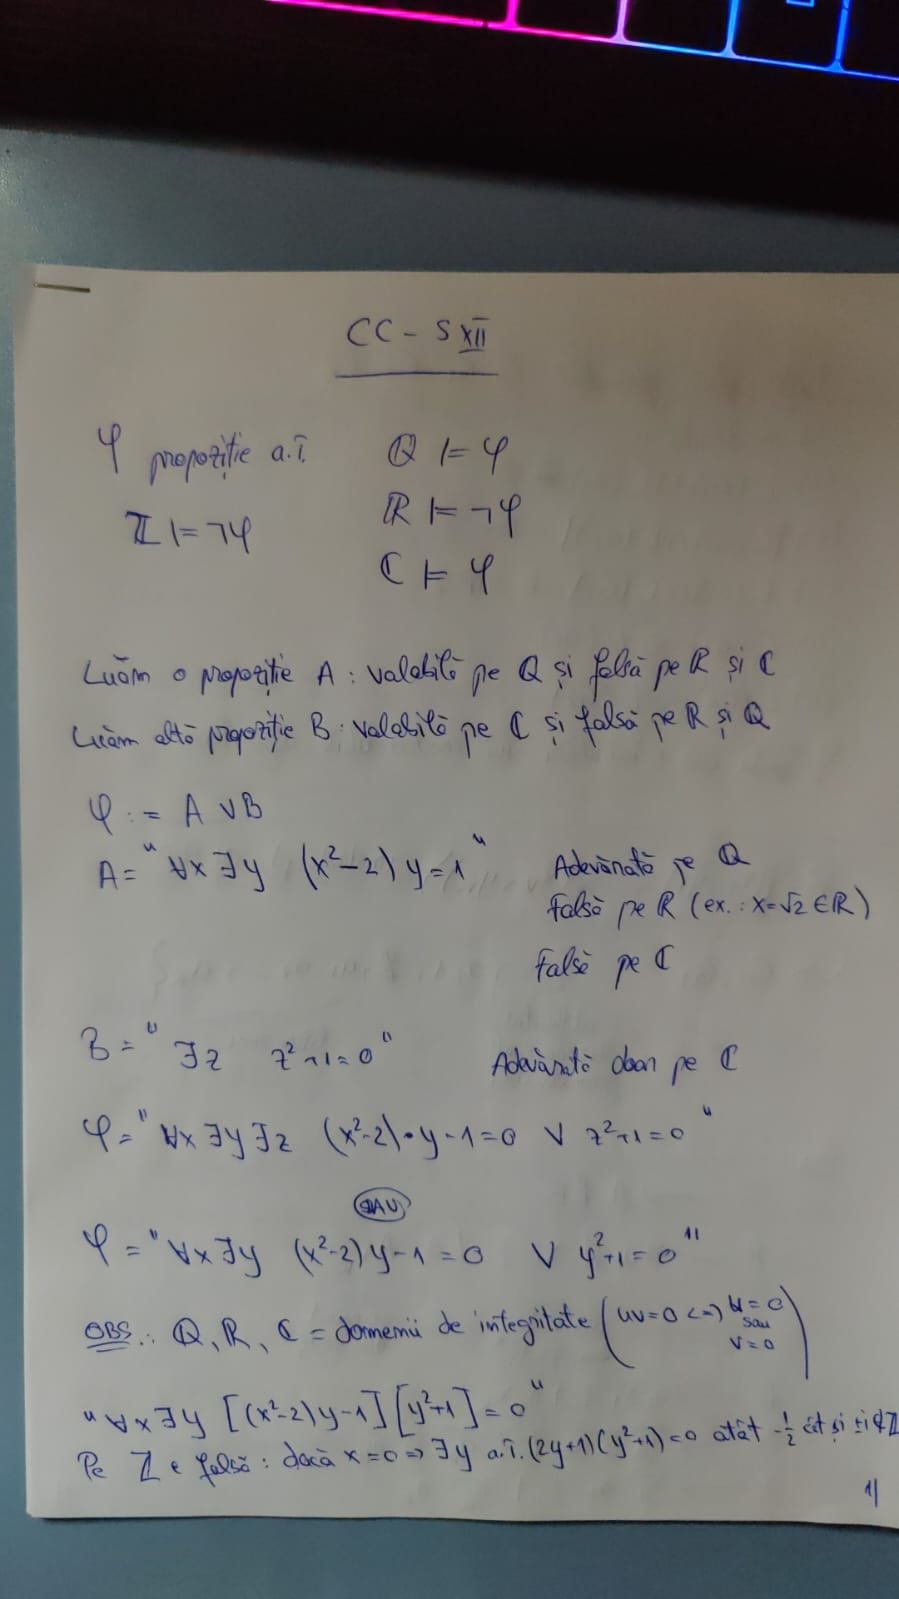 CC - S XII
φ propoziție a.î. ℚ ⊨ φ
ℤ ⊨ ¬φ ℝ ⊨ ¬φ
ℂ ⊨ φ
Luăm o propoziție A : valabilă pe ℚ și falsă pe ℝ și ℂ
Luăm altă propoziție B : valabilă pe ℂ și falsă pe ℝ și ℚ
φ := A ∨ B
A = " ∀x ∃y (x²-2) y = 1 " Adevărată pe ℚ
Falsă pe ℝ (ex. : x = √2 ∈ ℝ)
Falsă pe ℂ
B = " ∃z z²+1=0 " Adevărată doar pe ℂ
φ = " ∀x ∃y ∃z (x²-2)•y-1=0 ∨ z²+1=0 "
SAU
φ = " ∀x ∃y (x²-2)y-1=0 ∨ y²+1=0 "
OBS.: ℚ, ℝ, ℂ = domenii de integritate (uv=0 <=> u=0
sau
v=0)
" ∀x ∃y [(x²-2)y-1][y²+1]=0 "
Pe ℤ e falsă : dacă x=0 => ∃y a.î. (2y+1)(y²+1)=0 atât -1/2 cât și ±i ∉ ℤ
1/